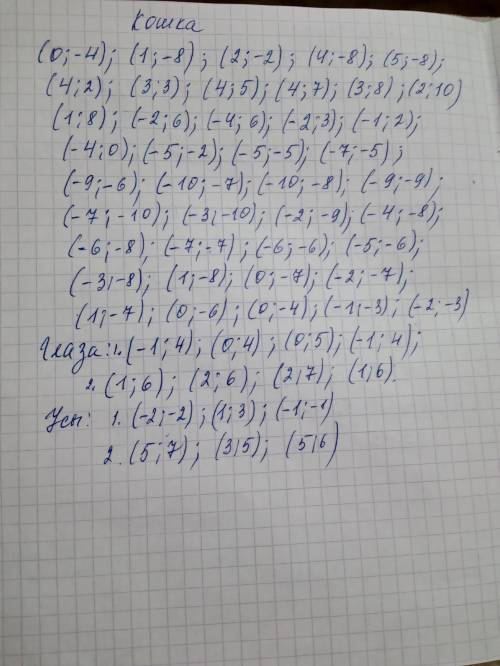 Кошка
(0;-4); (1;-8); (2;-2); (4;-8); (5;-8);
(4;2); (3;3); (4;5); (4;7); (3;8); (2;10)
(1;8); (-2;6); (-4;6); (-2;3); (-1;2);
(-4;0); (-5;-2); (-5;-5); (-7;-5);
(-9;-6); (-10;-7); (-10;-8); (-9;-9);
(-7;-10); (-3;-10); (-2;-9); (-4;-8);
(-6;-8); (-7;-7); (-6;-6); (-5;-6);
(-3;-8); (1;-8); (0;-7); (-2;-7);
(1;-7); (0;-6); (0;-4); (-1;-3); (-2;-3)
Глаза: 1. (-1;4); (0;4); (0;5); (-1;4);
2. (1;6); (2;6); (2;7); (1;6).
Усы: 1. (-2;-2); (1;3); (-1;-1)
2. (5;7); (3;5); (5;6)